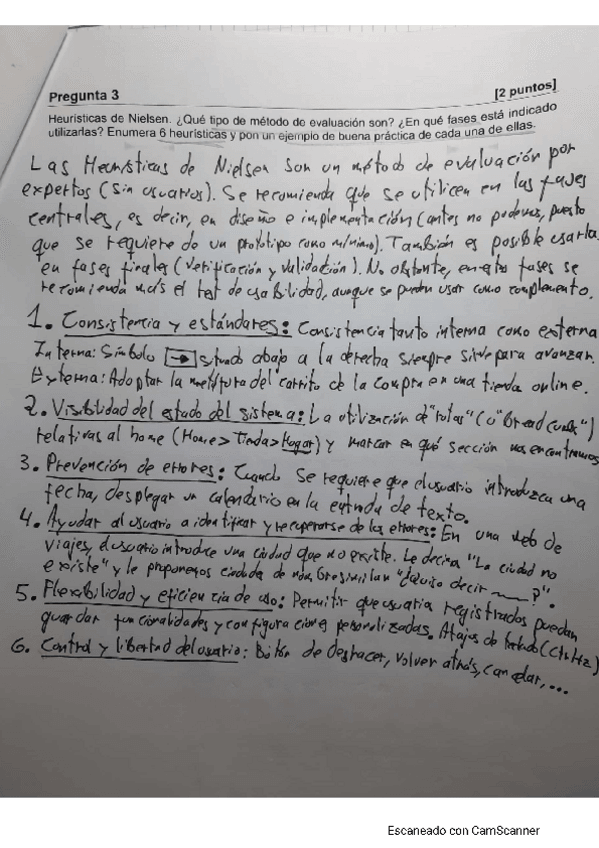 Pregunta 3 [2 puntos]
Heurísticas de Nielsen. ¿Qué tipo de método de evaluación son? ¿En qué fases está indicado
utilizarlas? Enumera 6 heurísticas y pon un ejemplo de buena práctica de cada una de ellas.
Las Heurísticas de Nielsen son un método de evaluación por
expertos (sin usuarios). Se recomienda que se utilicen en las fases
centrales, es decir, en diseño e implementación (antes no podemos, puesto
que se requiere de un prototipo como mínimo). También es posible usarla
en fases finales (verificación y validación). No obstante, en estas fases se
recomienda más el test de usabilidad, aunque se pueden usar como complemento.
1. Consistencia y estándares: Consistencia tanto interna como externa
Interna: Símbolo → situado abajo a la derecha siempre sirve para avanzar.
Externa: Adoptar la metáfora del carrito de la compra en una tienda online.
2. Visibilidad del estado del sistema: La utilización de "rutas" (o "Bread
relativas al home (Home > Tienda > Hogar) y marcar en qué sección nos encontramos
3. Prevención de errores: Cuando se requiere que el usuario introduzca una
fecha, desplegar un calendario en la entrada de texto.
4. Ayudar al usuario a identificar y recuperarse de los errores: En una web de
viajes, el usuario introduce una ciudad que no existe. Le decimos "La ciudad no
existe" y le proponemos ciudades de nombre similar "¿Quiso decir ?".
5. Flexibilidad y eficiencia de uso: Permitir que usuarios registrados puedan
guardar funcionalidades y configuraciones personalizadas. Atajos de teclado (Ctrl+Z)
6. Control y libertad del usuario: Botón de deshacer, volver atrás, cancelar, ...
Escaneado con CamScanner